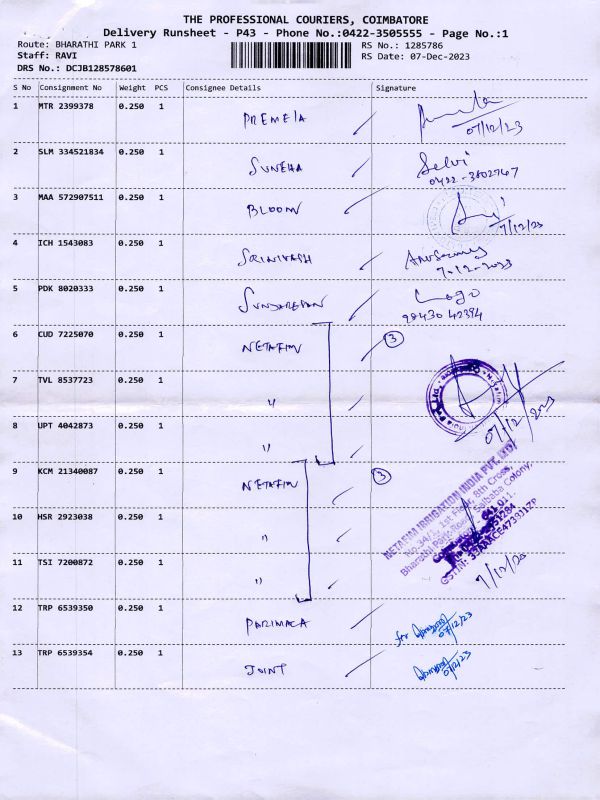 THE PROFESSIONAL COURIERS, COIMBATORE
Delivery Runsheet - P43 - Phone No.:0422-3505555 - Page No.:1
Route: BHARATHI PARK 1
RS No.: 1285786
Staff: RAVI
RS Date: 07-Dec-2023
DRS No.: DCJB128578601
S No Consignment No Weight PCS Consignee Details Signature
1 MTR 2399378 0.250 1 PREMELA
07/12/23
2 SLM 334521834 0.250 1 SUNEHA Selvi
0422-3802767
3 MAA 572907511 0.250 1 BLOOM
7/12/23
4 ICH 1543083 0.250 1 SRINIVASH
7.12-2023
5 PDK 8020333 0.250 1 SUNDARESAN Logo
98430 42394
6 CUD 7225070 0.250 1 NETAFIM 3
7 TVL 8537723 0.250 1 "
8 UPT 4042873 0.250 1 "
07/12/2023
9 KCM 21340087 0.250 1 NETAFIM 3
NETAFIM IRRIGATION INDIA PVT. LTD
No.34/1, 1st Floor, 8th Cross,
Bharathi Park Road, Saibaba Colony,
Coimbatore - 641 011.
10 HSR 2923038 0.250 1 "
11 TSI 7200872 0.250 1 "
7/12/23
12 TRP 6539350 0.250 1 for
07/12/23
13 TRP 6539354 0.250 1 JOINT